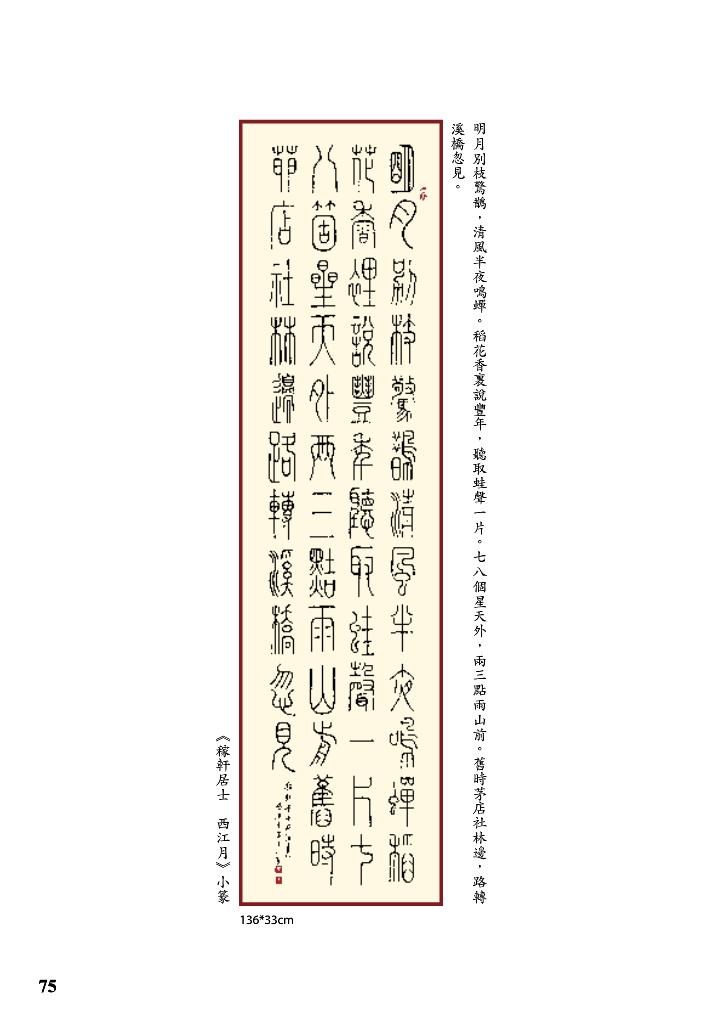 明月別枝驚鵲，清風半夜鳴蟬。稻花香裏說豐年，聽取蛙聲一片。七八個星天外，兩三點雨山前。舊時茅店社林邊，路轉
溪橋忽見。
明月別枝驚鵲清風半夜鳴蟬稻
花香裡說豐年聽取蛙聲一片七
八箇星天外兩三點雨山前舊時
茆店社林邊路轉溪橋忽見
《稼軒居士　西江月》小篆
136*33cm
75